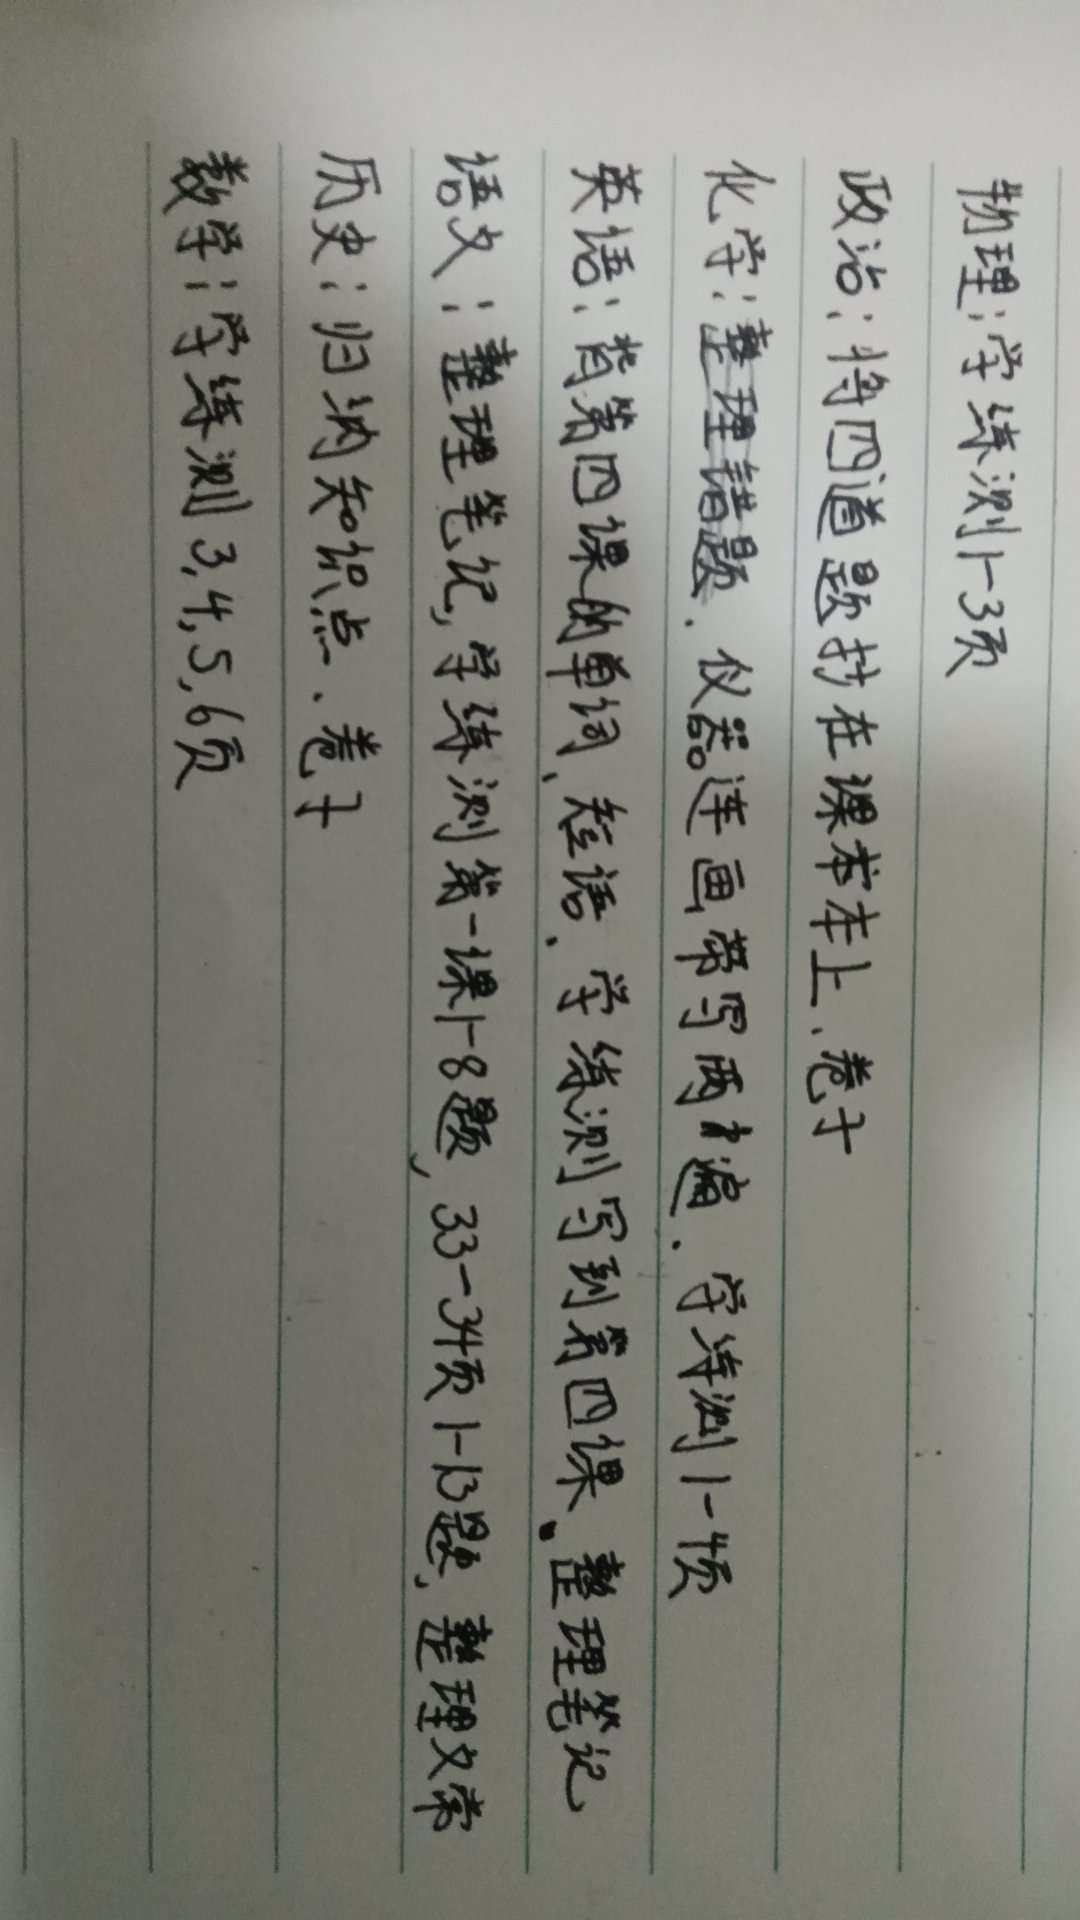 物理:学练测1-3页
政治:将四道题抄在课本上、卷子
化学:整理错题、仪器连画带写两遍、学练测1-4页
英语:背第四课的单词、短语、学练测写到第四课、整理笔记
语文:整理笔记,学练测第一课1-8题,33-34页1-13题,整理文常
历史:归纳知识点、卷子
数学:学练测3,4,5,6页